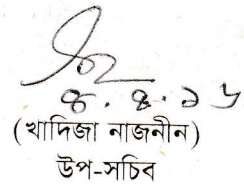 ৪.৪.১৬
(খাদিজা নাজনীন)
উপ-সচিব